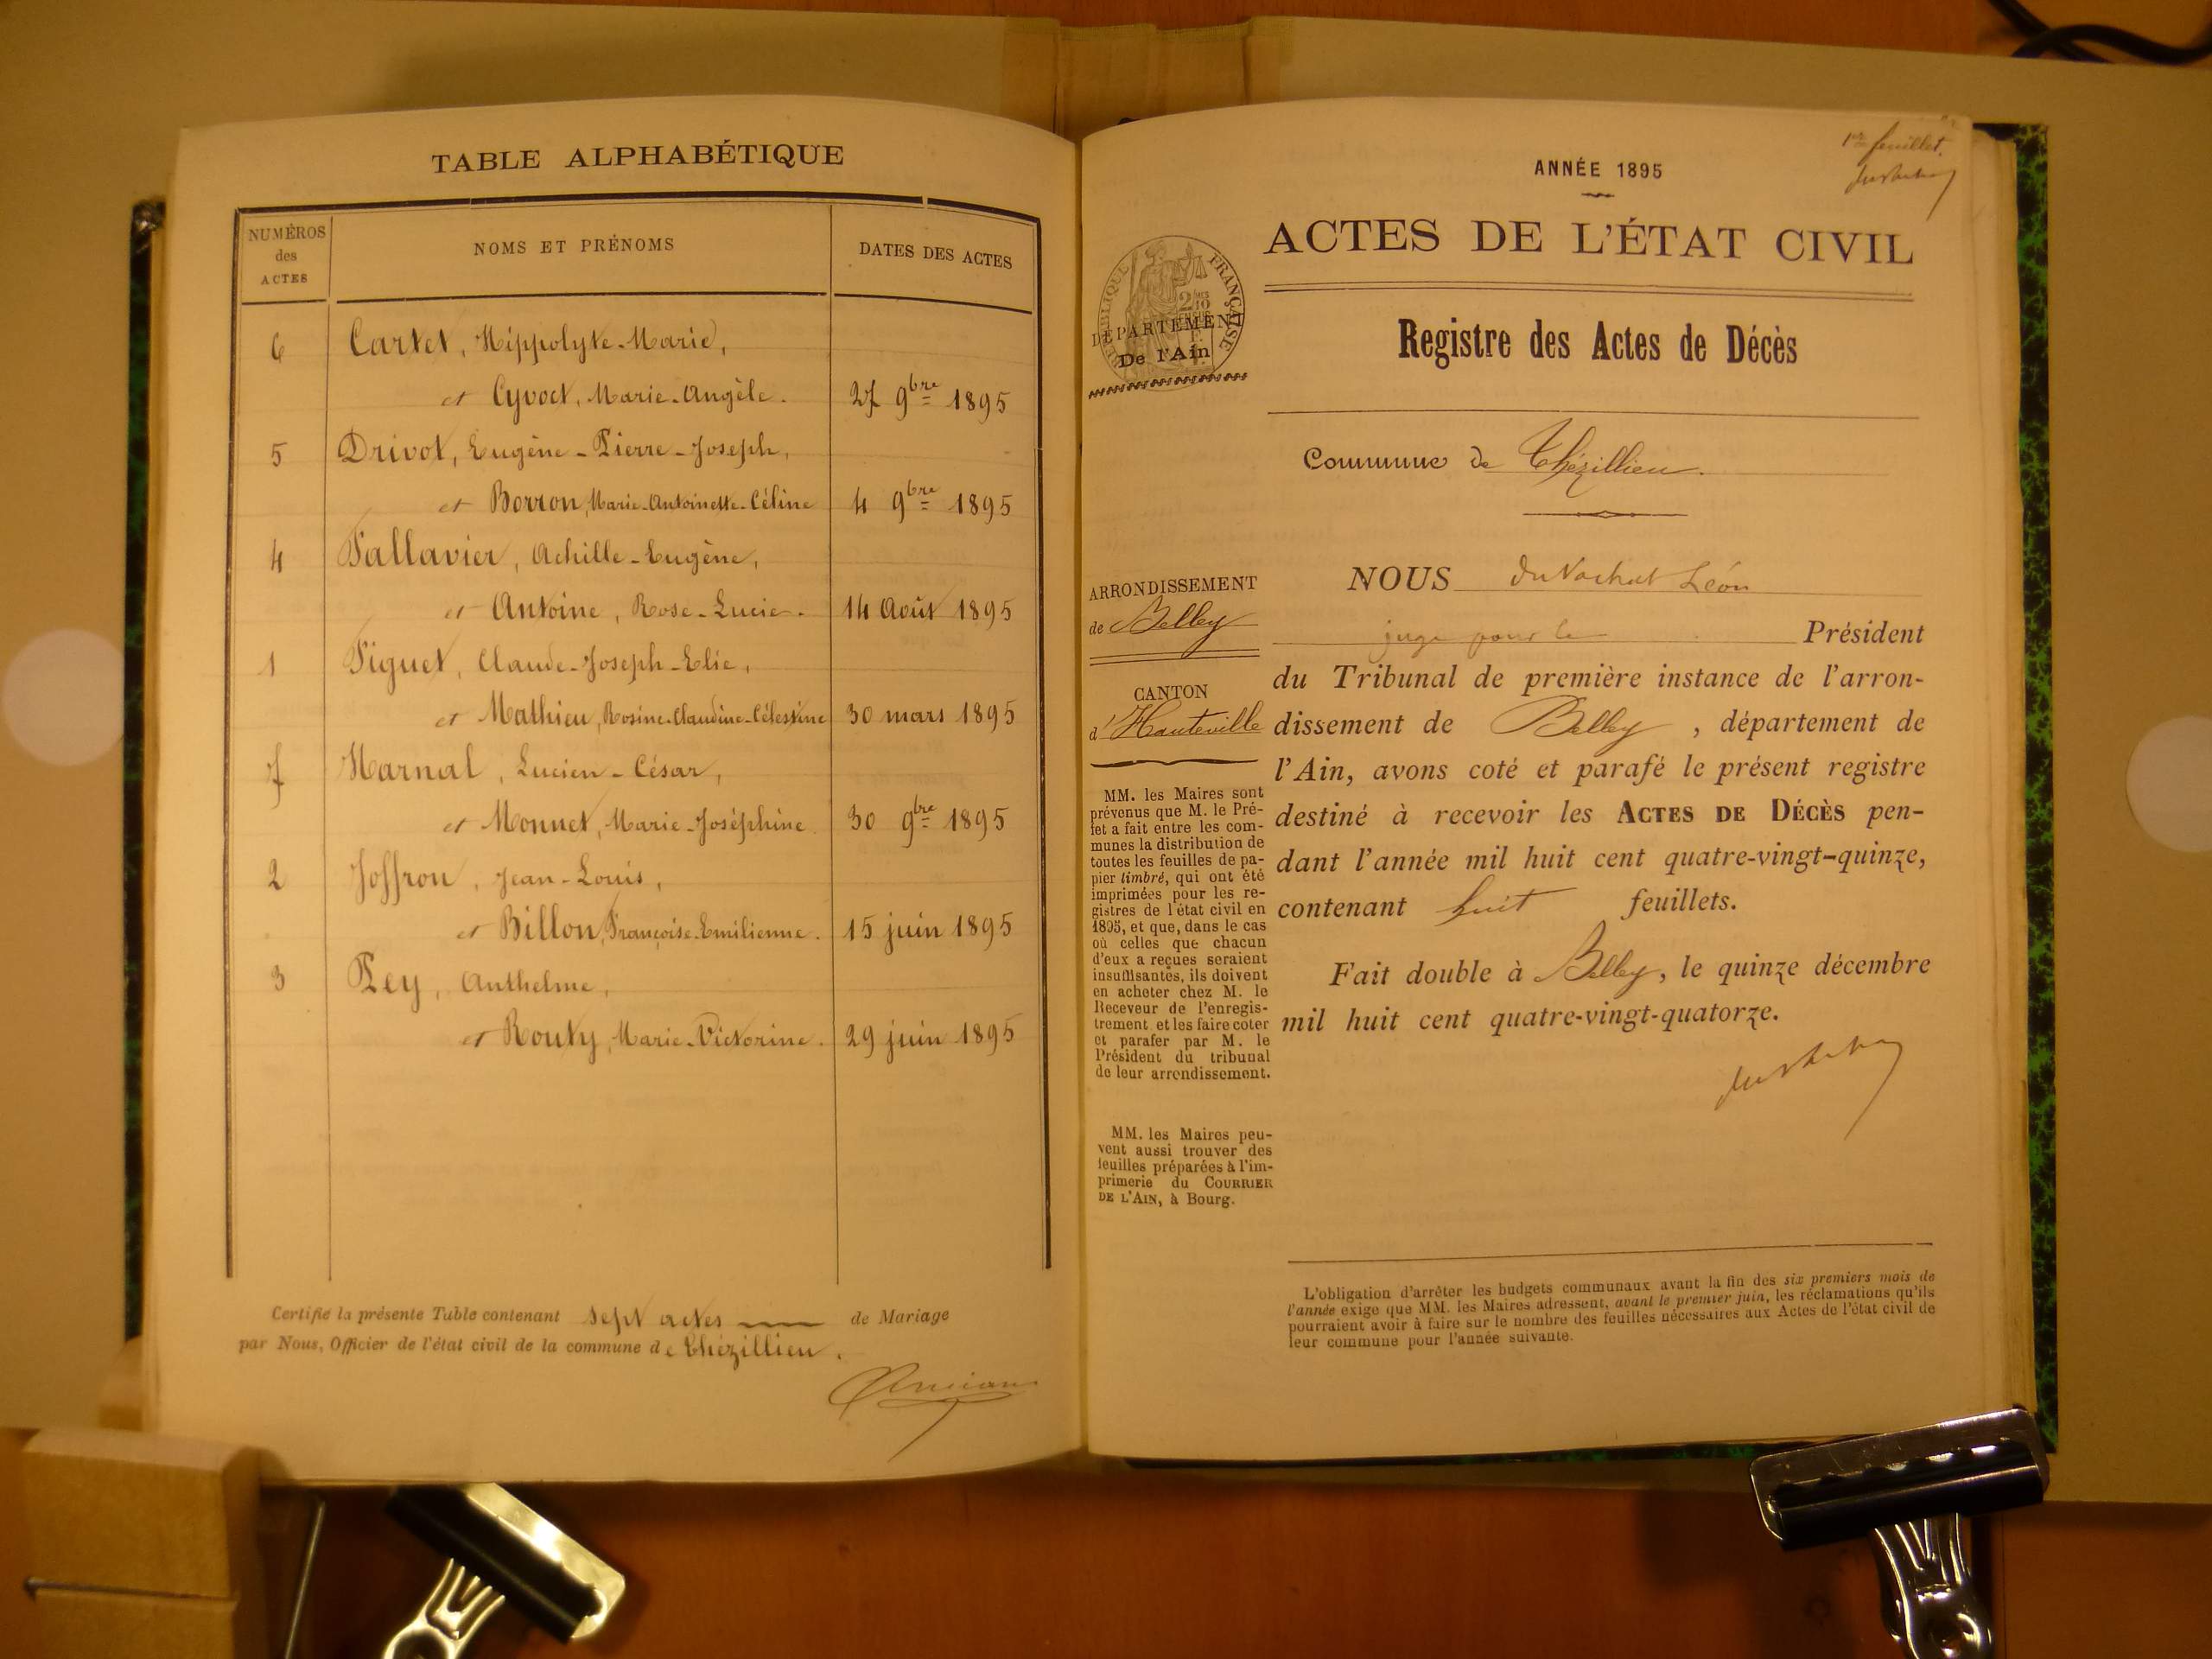 TABLE ALPHABÉTIQUE
NUMÉROS
des
ACTES
NOMS ET PRÉNOMS
DATES DES ACTES
6 Cartet, Hippolyte-Marie,
et Cyvoct, Marie-Angèle. 27 9bre 1895
5 Drivot, Eugène-Pierre-Joseph,
et Borron, Marie-Antoinette-Céline 4 9bre 1895
4 Fallavier, Achille-Eugène,
et Antoine, Rose-Lucie. 14 Août 1895
1 Figuet, Claude-Joseph-Elie,
et Mathieu, Rosine-Claudine-Célestine 30 mars 1895
7 Harnal, Lucien-César,
et Monnet, Marie-Joséphine 30 9bre 1895
2 Joffron, Jean-Louis,
et Billon, Françoise-Emilienne. 15 juin 1895
3 Pey, Anthelme,
et Routy, Marie-Victorine. 29 juin 1895
Certifié la présente Table contenant sept actes de Mariage
par Nous, Officier de l'état civil de la commune de Thézillieu.
1er feuillet.
ANNÉE 1895
ACTES DE L'ÉTAT CIVIL
RÉPUBLIQUE FRANÇAISE
DÉPARTEMENT
De l'Ain
Registre des Actes de Décès
Commune de Thézillieu.
ARRONDISSEMENT
de Belley
CANTON
d'Hauteville
MM. les Maires sont
prévenus que M. le Pré-
fet a fait entre les com-
munes la distribution de
toutes les feuilles de pa-
pier timbré, qui ont été
imprimées pour les re-
gistres de l'état civil en
1895, et que, dans le cas
où celles que chacun
d'eux a reçues seraient
insuffisantes, ils doivent
en acheter chez M. le
Receveur de l'enregis-
trement et les faire coter
et parafer par M. le
Président du tribunal
de leur arrondissement.
MM. les Maires peu-
vent aussi trouver des
feuilles préparées à l'im-
primerie du COURRIER
DE L'AIN, à Bourg.
NOUS Duvachat Léon
juge pour le Président
du Tribunal de première instance de l'arron-
dissement de Belley, département de
l'Ain, avons coté et parafé le présent registre
destiné à recevoir les ACTES DE DÉCÈS pen-
dant l'année mil huit cent quatre-vingt-quinze,
contenant huit feuillets.
Fait double à Belley, le quinze décembre
mil huit cent quatre-vingt-quatorze.
L'obligation d'arrêter les budgets communaux avant la fin des six premiers mois de
l'année exige que MM. les Maires adressent, avant le premier juin, les réclamations qu'ils
pourraient avoir à faire sur le nombre des feuilles nécessaires aux Actes de l'état civil de
leur commune pour l'année suivante.